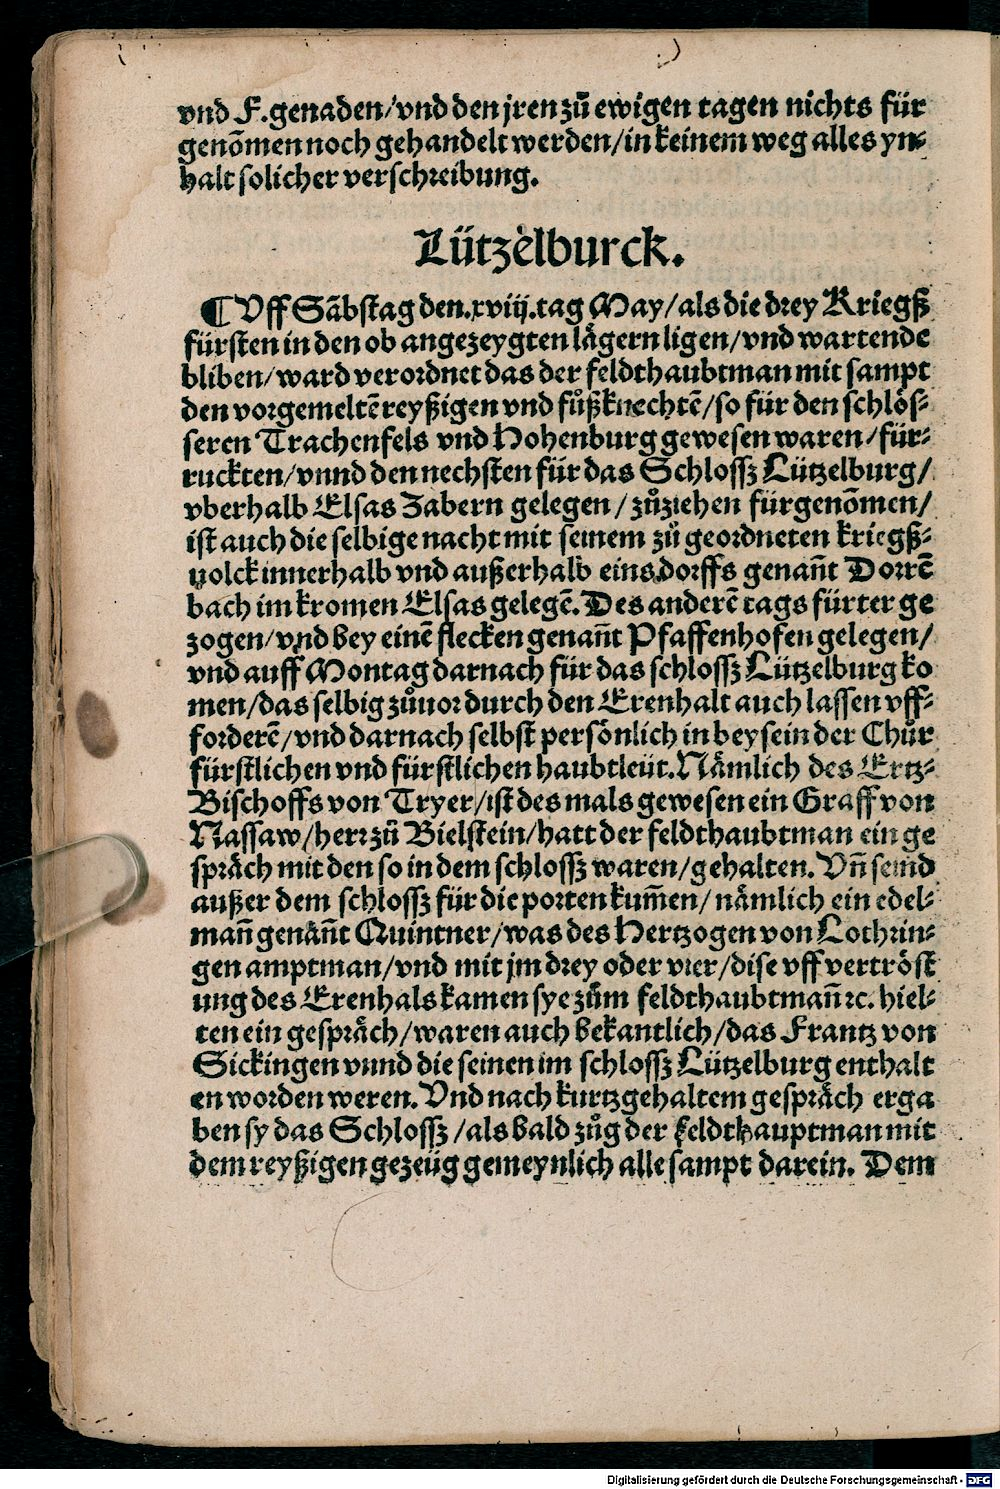 vnd F.genaden/vnd den jren zů ewigen tagen nichts für
genõmen noch gehandelt werden/in keinem weg alles yn⸗
halt solicher verschreibung.
Lützelburck.
¶ Vff Sãbstag den.xviij.tag May/als die drey Kriegß
fürsten in den ob angezeygten lägern ligen/vnd wartende
bliben/ward verordnet das der feldthaubtman mit sampt
den vorgemeltẽ reyßigen vnd fůßknechtẽ/so für den schlös⸗
seren Trachenfels vnd Hohenburg gewesen waren/für⸗
ruckten/vnnd den nechsten für das Schlossz Lützelburg/
vberhalb Elsas Zabern gelegen/zůziehen fürgenõmen/
ist auch die selbige nacht mit seinem zů geordneten kriegß⸗
uolck innerhalb vnd außerhalb eins dorffs genañt Dorrẽ
bach im kromen Elsas gelegẽ. Des anderẽ tags fürter ge
zogen/vnd bey einẽ flecken genañt Pfaffenhofen gelegen/
vnd auff Montag darnach für das schlossz Lützelburg ko
men/das selbig zůuor durch den Erenhalt auch lassen vff⸗
forderẽ/vnd darnach selbst persönlich in beysein der Chůr
fürstlichen vnd fürstlichen haubtleüt. Nämlich des Ertz⸗
Bischoffs von Tryer/ist des mals gewesen ein Graff von
Nassaw/herr zů Bielstein/hatt der feldthaubtman ein ge
spräch mit den so in dem schlossz waren/gehalten. Vñ seind
außer dem schlossz für die porten kum̃en/nämlich ein edel⸗
mañ genäñt Quintner/was des Hertzogen von Lothrin⸗
gen amptman/vnd mit jm drey oder vier/dise vff vertröst
ung des Erenhals kamen sye zům feldthaubtmañ ꝛc. hiel⸗
ten ein gespräch/waren auch bekantlich/das Frantz von
Sickingen vnnd die seinen im schlossz Lützelburg enthalt
en worden weren. Vnd nach kurtzgehaltem gespräch erga
ben sy das Schlossz/als bald zůg der feldthauptman mit
dem reyßigen gezeüg gemeynlich alle sampt darein. Dem
Digitalisierung gefördert durch die Deutsche Forschungsgemeinschaft - DFG